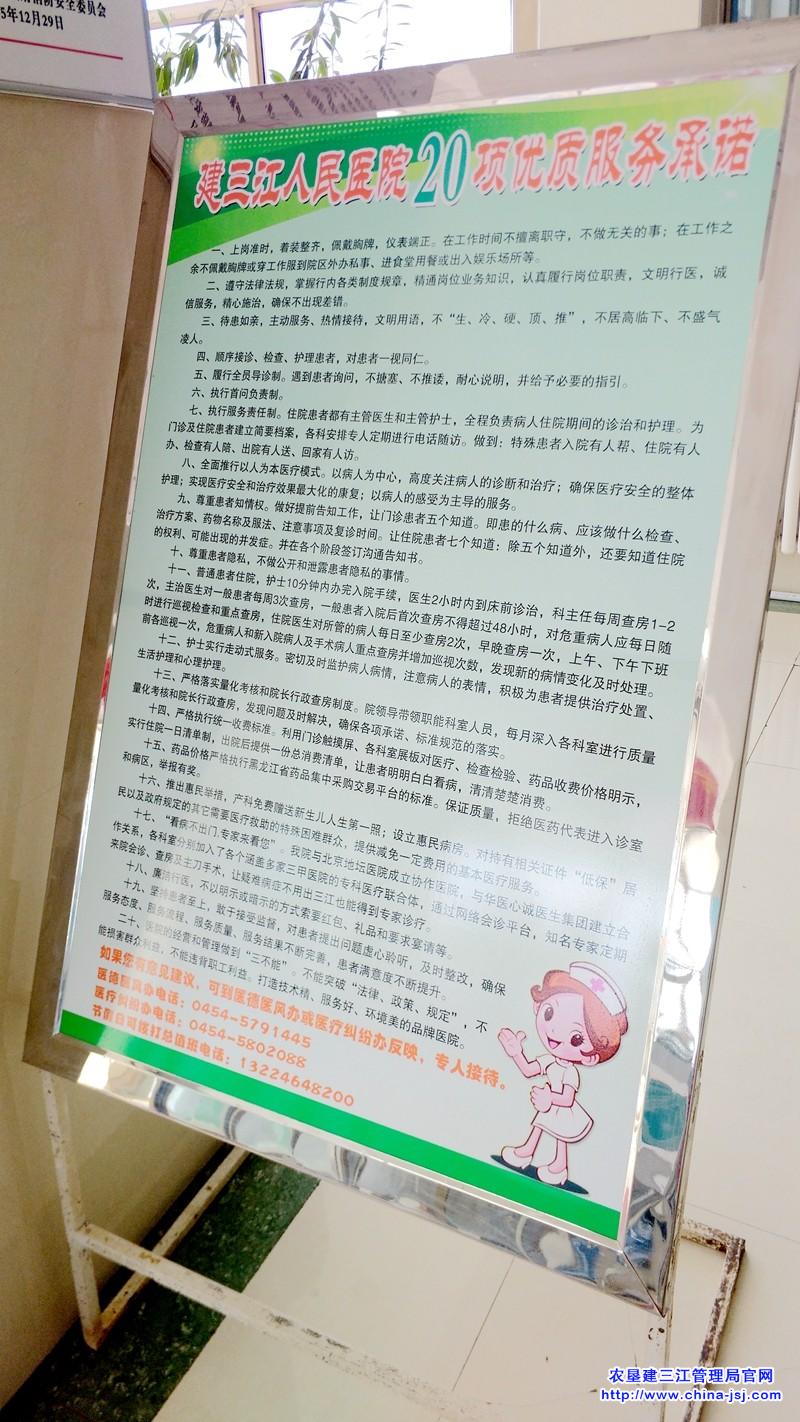 消防安全委员会
5年12月29日
建三江人民医院20项优质服务承诺
一、上岗准时，着装整齐，佩戴胸牌，仪表端正。在工作时间不擅离职守，不做无关的事；在工作之
余不佩戴胸牌或穿工作服到院区外办私事、进食堂用餐或出入娱乐场所等。
二、遵守法律法规，掌握行内各类制度规章，精通岗位业务知识，认真履行岗位职责，文明行医，诚
信服务，精心施治，确保不出现差错。
三、待患如亲，主动服务、热情接待，文明用语，不“生、冷、硬、顶、推”，不居高临下、不盛气
凌人。
四、顺序接诊、检查、护理患者，对患者一视同仁。
五、履行全员导诊制。遇到患者询问，不搪塞、不推诿，耐心说明，并给予必要的指引。
六、执行首问负责制。
七、执行服务责任制。住院患者都有主管医生和主管护士，全程负责病人住院期间的诊治和护理。为
门诊及住院患者建立简要档案，各科安排专人定期进行电话随访。做到：特殊患者入院有人帮、住院有人
办、检查有人陪、出院有人送、回家有人访。
八、全面推行以人为本医疗模式。以病人为中心，高度关注病人的诊断和治疗；确保医疗安全的整体
护理；实现医疗安全和治疗效果最大化的康复；以病人的感受为主导的服务。
九、尊重患者知情权。做好提前告知工作，让门诊患者五个知道。即患的什么病、应该做什么检查、
治疗方案、药物名称及服法、注意事项及复诊时间。让住院患者七个知道：除五个知道外，还要知道住院
的权利、可能出现的并发症。并在各个阶段签订沟通告知书。
十、尊重患者隐私，不做公开和泄露患者隐私的事情。
十一、普通患者住院，护士10分钟内办完入院手续，医生2小时内到床前诊治，科主任每周查房1-2
次，主治医生对一般患者每周3次查房，一般患者入院后首次查房不得超过48小时，对危重病人应每日随
时进行巡视检查和重点查房，住院医生对所管的病人每日至少查房2次，早晚查房一次，上午、下午下班
前各巡视一次，危重病人和新入院病人及手术病人重点查房并增加巡视次数，发现新的病情变化及时处理。
十二、护士实行走动式服务。密切及时监护病人病情，注意病人的表情，积极为患者提供治疗处置、
生活护理和心理护理。
十三、严格落实量化考核和院长行政查房制度。院领导带领职能科室人员，每月深入各科室进行质量
量化考核和院长行政查房，发现问题及时解决，确保各项承诺、标准规范的落实。
十四、严格执行统一收费标准。利用门诊触摸屏、各科室展板对医疗、检查检验、药品收费价格明示，
实行住院一日清单制，出院后提供一份总消费清单，让患者明明白白看病，清清楚楚消费。
十五、药品价格严格执行黑龙江省药品集中采购交易平台的标准。保证质量，拒绝医药代表进入诊室
和病区，举报有奖。
十六、推出惠民举措，产科免费赠送新生儿人生第一照；设立惠民病房。对持有相关证件“低保”居
民以及政府规定的其它需要医疗救助的特殊困难群众，提供减免一定费用的基本医疗服务。
十七、“看病不出门,专家来看您”。我院与北京地坛医院成立协作医院，与华医心诚医生集团建立合
作关系，各科室分别加入了各个涵盖多家三甲医院的专科医疗联合体，通过网络会诊平台，知名专家定期
来院会诊、查房及主刀手术，让疑难病症不用出三江也能得到专家诊疗。
十八、廉洁行医，不以明示或暗示的方式索要红包、礼品和要求宴请等。
十九、坚持患者至上，敢于接受监督，对患者提出问题虚心聆听，及时整改，确保
服务态度、服务流程、服务质量、服务结果不断完善，患者满意度不断提升。
二十、医院的经营和管理做到“三不能”。不能突破“法律、政策、规定”，不
能损害群众利益，不能违背职工利益。打造技术精、服务好、环境美的品牌医院。
如果您有意见建议，可到医德医风办或医疗纠纷办反映，专人接待。
医德医风办电话：0454-5791445
医疗纠纷办电话：0454-5802088
节假日可拨打总值班电话：13224648200
农垦建三江管理局官网
http://www.china-jsj.com